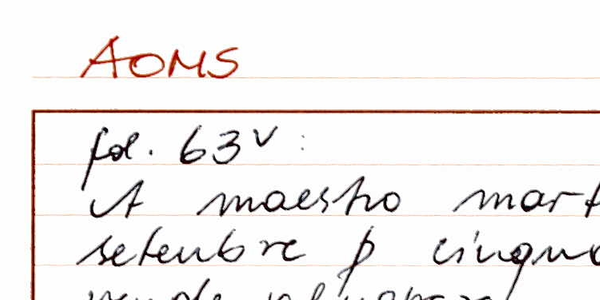 AOMS
fol. 63v:
A maestro mart
setenbre p cinque